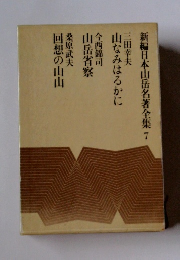 新編日本山岳名著全集 7
三田幸夫
山なみはるかに
今西錦司
山岳省察
桑原武夫
回想の山山